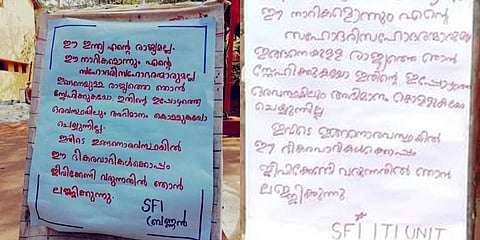 ഈ ഇന്ത്യ എന്റെ രാജ്യമല്ല.
ഈ നാറികളൊന്നും എന്റെ
സഹോദരീസഹോദരന്മാരുമല്ല
ഇങ്ങനെയുള്ള രാജ്യത്തെ ഞാൻ
സ്നേഹിക്കുകയോ ഇതിന്റെ ഇപ്പോഴത്തെ
അവസ്ഥയിലും അഭിമാനം കൊള്ളുകയോ
ചെയ്യുന്നില്ല.
ഇവിടെ ഇങ്ങനൊരവസ്ഥയിൽ
ഈ ഭീകരവാദികൾക്കൊപ്പം
ജീവിക്കേണ്ടി വരുന്നതിൽ ഞാൻ
ലജ്ജിക്കുന്നു.
SFI
ബ്രണ്ണൻ
ഈ നാറികളൊന്നും എന്റെ
സഹോദരീസഹോദരന്മാരുമല്ല
ഇങ്ങനെയുള്ള രാജ്യത്തെ ഞാൻ
സ്നേഹിക്കുകയോ ഇതിന്റെ ഇപ്പോഴത്തെ
അവസ്ഥയിലും അഭിമാനം കൊള്ളുകയോ
ചെയ്യുന്നില്ല
ഇവിടെ ഇങ്ങനൊരവസ്ഥയിൽ
ഈ ഭീകരവാദികൾക്കൊപ്പം
ജീവിക്കേണ്ടി വരുന്നതിൽ ഞാൻ
ലജ്ജിക്കുന്നു
SFI ITI UNIT